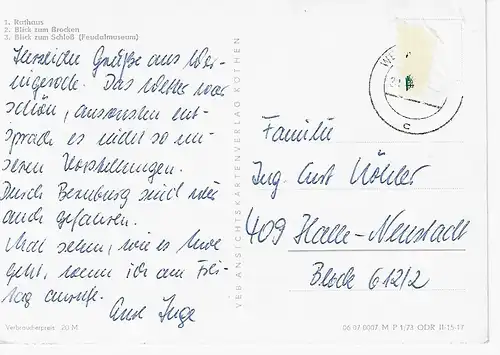 1. Rathaus
2. Blick zum Brocken
3. Blick zum Schloß (Feudalmuseum)
Herzliche Grüße aus Wer-
nigerode. Das Wetter war
schön, ansonsten ent-
sprach es nicht so un-
seren Vorstellungen.
Durch Bernburg sind wir
auch gefahren.
Mal sehen, wie es Euch
geht, wenn ich am Frei-
tag anrufe.
Eure Inge
Verbraucherpreis: 20 M
VEB ANSICHTSKARTENVERLAG KÖTHEN
WE
c
Familie
Ing. Curt Köhler
409 Halle-Neustadt
Block 612/2
06 07 0007 M P 1/73 DDR II-15-17